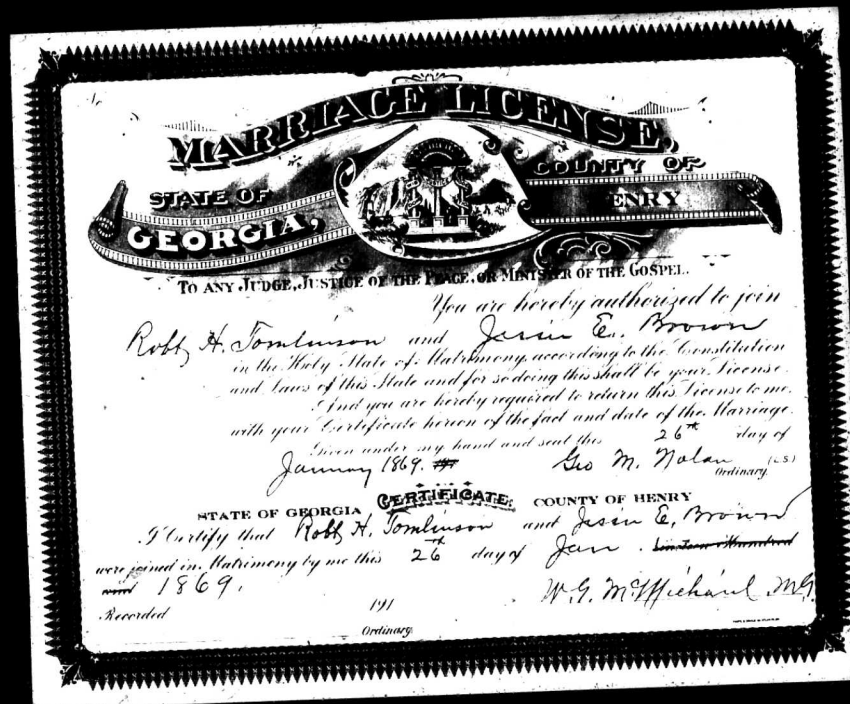 No
MARRIAGE LICENSE,
STATE OF
GEORGIA,
COUNTY OF
ENRY
TO ANY JUDGE, JUSTICE OF THE PEACE, OR MINISTER OF THE GOSPEL.
You are hereby authorized to join
Robt H. Tomlinson and Jessie E. Brown
in the Holy State of Matrimony, according to the Constitution
and laws of this State and for so doing this shall be your License.
And you are hereby required to return this License to me,
with your Certificate hereon of the fact and date of the Marriage.
Given under my hand and seal this 26th day of
January 1869. Geo M. Nolan (L.S.)
Ordinary.
CERTIFICATE.
STATE OF GEORGIA COUNTY OF HENRY
I Certify that Robt H. Tomlinson and Jessie E. Brown
were joined in Matrimony by me this 26th day of Jan. Nineteen Hundred
and 1869.
W. G. McMichael, MG
Recorded 191
Ordinary.